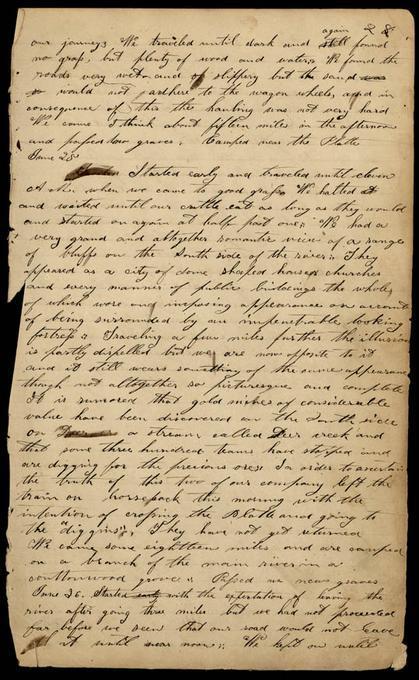 again 28
our journey; We traveled until dark and still found
no grass, but plenty of wood and water; We found the
roads very wet and slippery but the sand was
so would not adhere to the wagon wheels, and in
consequence of this the hauling was not very hard
We came I think about fifteen miles in the afternoon
and passed two graves, Camped near the Platte
June 25
Started early and traveled until eleven
A.M. when we came to good grass We halted
and waited until our cattle eat as long as they would
and started on again at half past one; We had a
very grand and altogether romantic view of a range
of bluffs on the South side of the river; They
appeared as a city of dome shaped houses churches
and every manner of public bildings the whole
of which wore an imposing appearance on account
of being surrounded by an impenetrable looking
fortress; Traveling a few miles further the illusion
is partly dispelled but we are now opposite to it
and it still wears something of the same appearance
though not altogether so picturesque and complete
It is rumored that gold mines of considerable
value have been discovered on the South side
on a stream called Deer creek and
that some three hundred teams have stopped and
are digging for the precious ores; In order to ascertain
the truth of this two of our company left the
train on horseback this morning with the
intention of crossing the Platte and going to
the "diggins"; They have not yet returned
We came some eighteen miles and are camped
on a branch of the main river in a
cottonwood grove; Passed no new graves
June 26. Started early with the expectation of leaving the
river after going three miles but we had not proceeded
far before we seen that our road would not leave
it until near noon; We kept on until